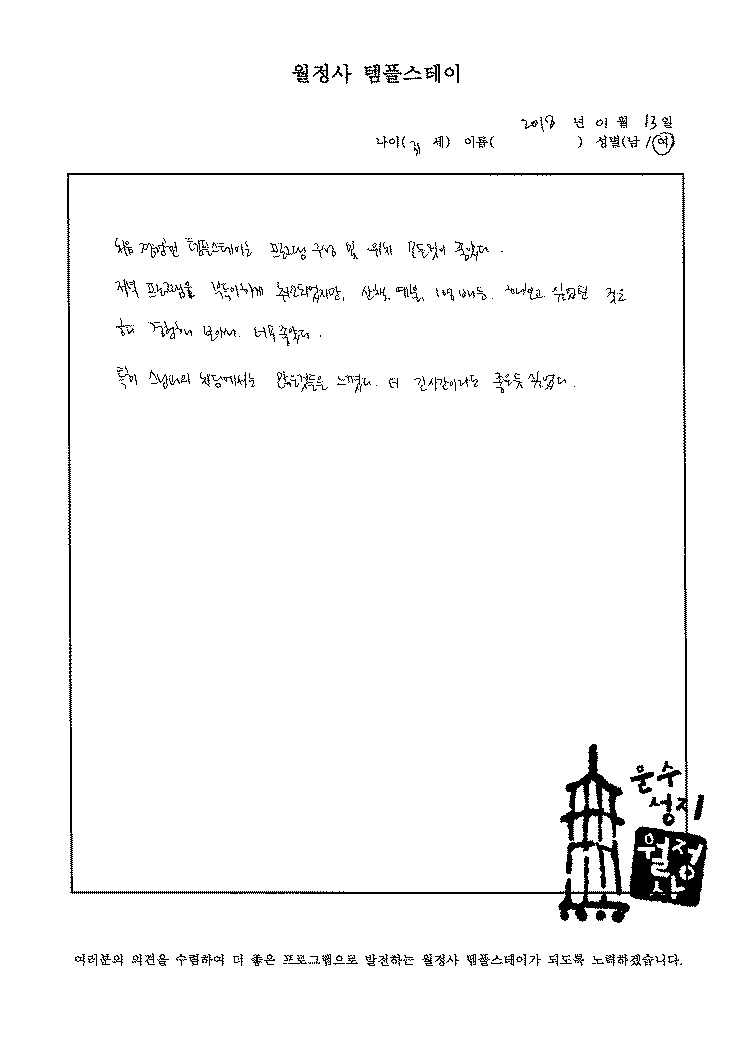 월정사 템플스테이
2018 년 01 월 13 일
나이( 세) 이름( ) 성별(남 / 여)
처음 경험한 템플스테이는 프로그램 구성 및 위치 모든것이 좋았다.
저녁 프로그램을 부득이하게 취소되었지만, 산책, 예불, 108배등. 해보고 싶었던 것을
경험해 보아서. 너무 좋았다.
특히 스님과의 차담에서는 많은것들을 느꼈다. 더 긴시간이라도 좋을듯 싶었다.
문수
성지
월정
사
여러분의 의견을 수렴하여 더 좋은 프로그램으로 발전하는 월정사 템플스테이가 되도록 노력하겠습니다.